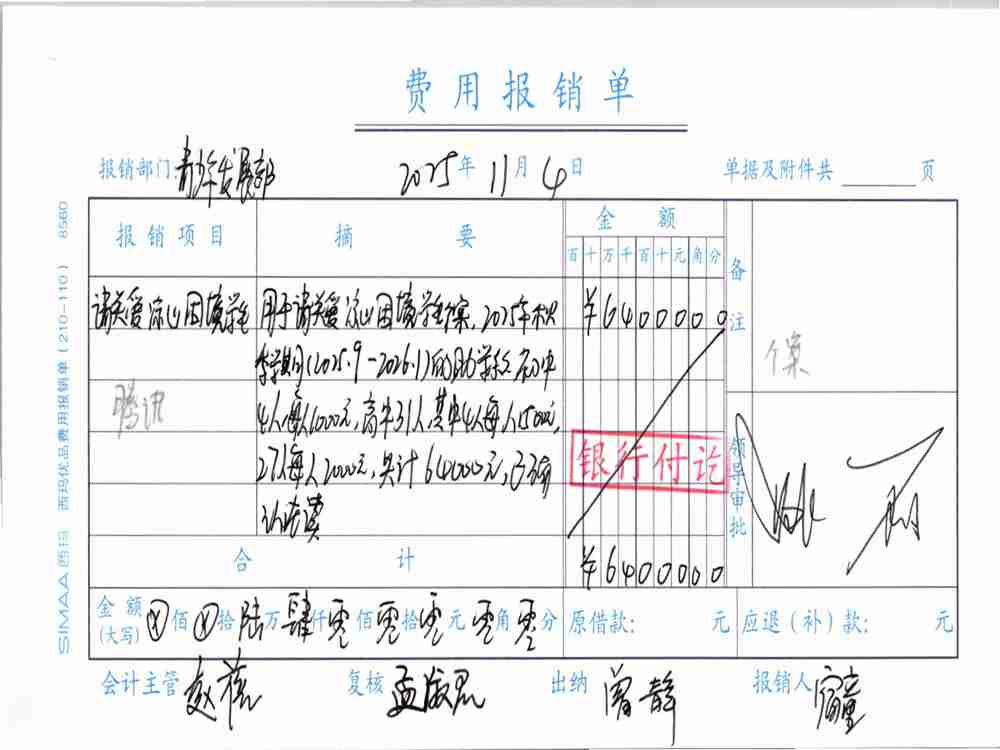 费用报销单
报销部门: 青年发展部 2025年 11月 4日 单据及附件共 页
报销项目 摘要 金额 备注
百十万千百十元角分
请关爱凉山困境学生 用于请关爱凉山困境学生个案,2025年秋 ¥6400000
季学期(2025.9-2026.1)的助学款 初中
腾讯 4人每人1000元,高中31人,其中4人每人1500元,
27人每人2000元,共计64000元,已
个案
银行付讫
领导审批
合计 ¥6400000
金额(大写) ⓧ佰ⓧ拾陆万肆仟零佰零拾零元零角零分 原借款: 元 应退(补)款: 元
会计主管 赵 复核 孟 出纳 曾静 报销人
SIMAA 西玛 西玛优品费用报销单(210-110) 8560